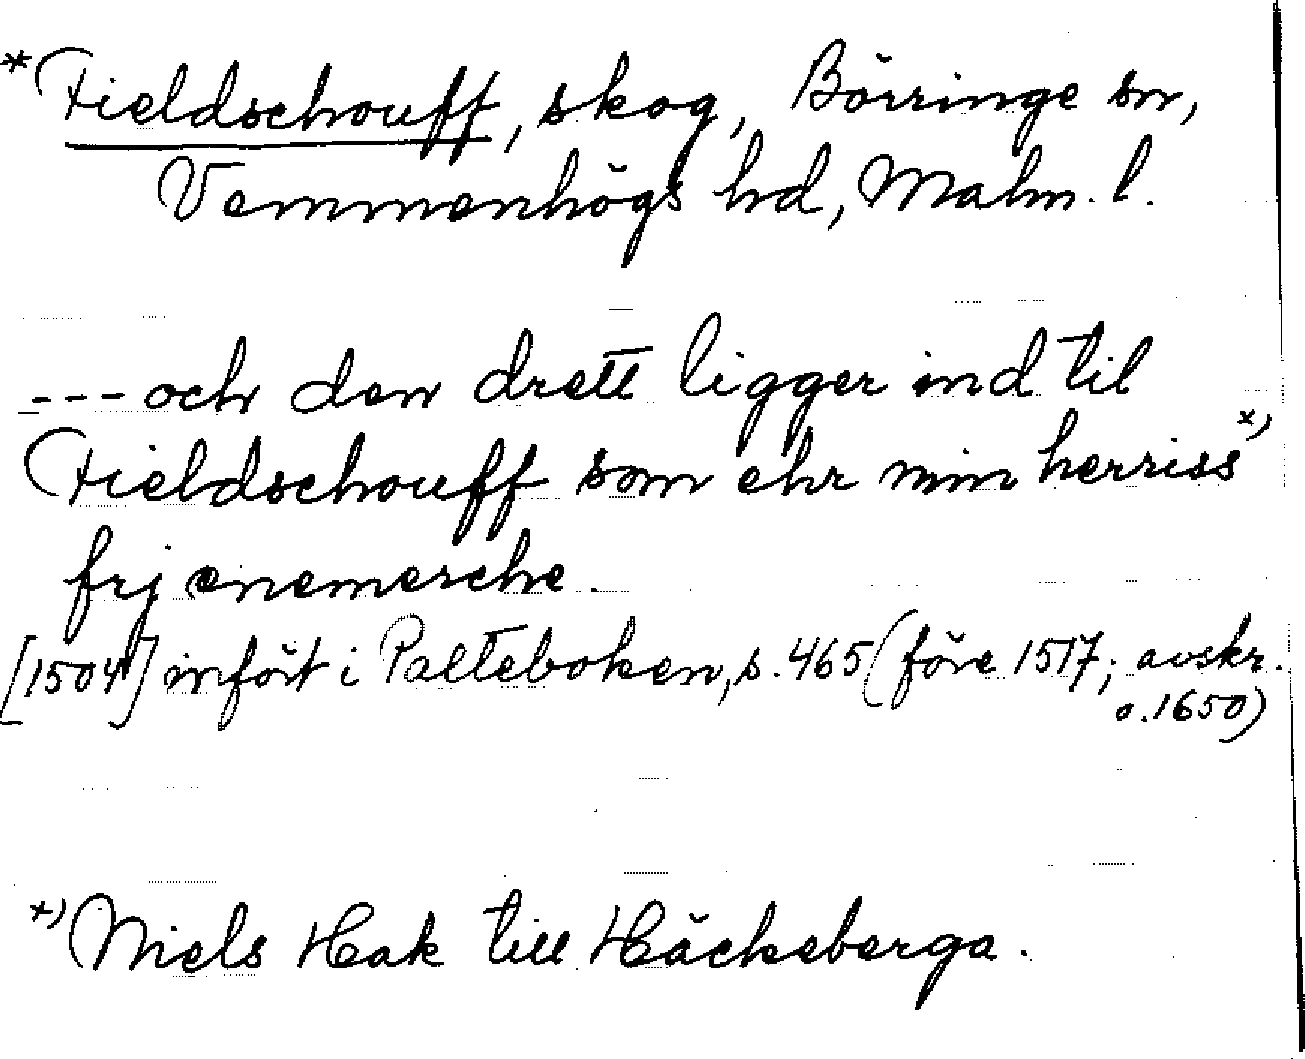 *Fieldschouff, skog, Börringe sn,
Vemmenhögs hd, Malm. l.
--- och den drett ligger ind til
Fieldschouff som ehr min herriss x)
frj enemerche.
[1504] infört i Palteboken, s. 465 (före 1517; avskr.
o. 1650)
x) Niels Hak till Häckeberga.